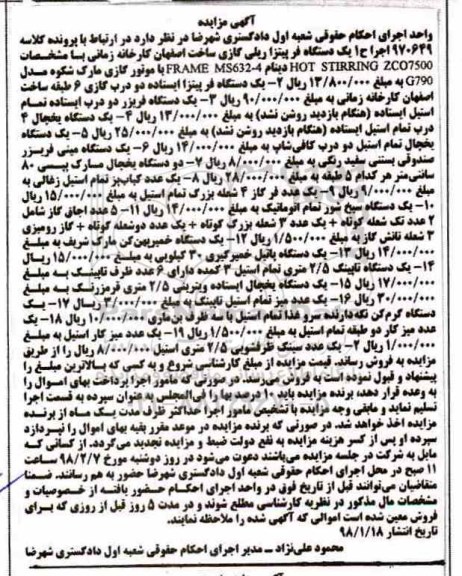 آگهی مزایده
واحد اجرای احکام حقوقی شعبه اول دادگستری شهرضا در نظر دارد در ارتباط با پرونده کلاسه
۹۷۰۶۴۹ اجرا ح۱ یک دستگاه فر پیتزا ریلی گازی ساخت اصفهان کارخانه زمانی بـا مشخصات
HOT STIRRING ZCO7500 دینام FRAME MS632-4 با موتور گازی مارک شکوه مـدل
G790 به مبلغ ۱۳/۸۰۰/۰۰۰ ریال ۲- یک دستگاه فر پیتزا ایستاده دو درب گازی ۶ طبقه ساخت
اصفهان کارخانه زمانی به مبلغ ۹۰/۰۰۰/۰۰۰ ریال ۳- یک دستگاه فریزر دو درب ایستاده تمـام
استیل ایستاده (هنگام بازدید روشن نشد) به مبلغ ۱۳/۰۰۰/۰۰۰ ریال ۴- یک دستگاه یخچال ۴
درب تمام استیل ایستاده (هنگام بازدید روشن نشد) به مبلغ ۲۵/۰۰۰/۰۰۰ ریال ۵- یک دستگاه
یخچال تمام استیل دو درب کافی‌شاپ به مبلغ ۱۴/۰۰۰/۰۰۰ ریال ۶- یک دستگاه مینی فریـزر
صندوقی بستنی سفید رنگی به مبلغ ۸/۰۰۰/۰۰۰ ریال ۷- دو دستگاه یخچال مـارک پپیسی ۸۰
سانتی‌متر هر کدام ۵ طبقه به مبلغ ۲۸/۰۰۰/۰۰۰ ریال ۸- یک عدد کباب‌پز تمام استیل زغالی به
مبلغ ۹/۰۰۰/۰۰۰ ریال ۹- یک عدد فر گاز ۴ شعله بزرگ تمام استیل به مبلغ ۱۵/۰۰۰/۰۰۰ ریال
۱۰- یک دستگاه سیخ شور تمام اتوماتیک به مبلغ ۱۴/۰۰۰/۰۰۰ ریال ۱۱- ۵ عدد اجاق گاز شامل
۲ عدد تک شعله کوتاه + یک عدد ۳ شعله بزرگ کوتاه + یک عدد دوشعله کوتاه + گاز رومیزی
۳ شعله تانش گاز به مبلغ ۱/۵۰۰/۰۰۰ ریال ۱۲- یک دستگاه خمیرپهن‌کن مارک شریف به مبلـغ
۱۴/۰۰۰/۰۰۰ ریال ۱۳- یک دستگاه پاتیل خمیرگیری ۳۰ کیلویی به مبلـغ ۱۵/۰۰۰/۰۰۰ ریـال
۱۴- یک دستگاه تاپینگ ۲/۵ متری تمام استیل ۳ کمده دارای ۶ عدد ظرف تاپینـگ بـه مبلـغ
۱۷/۰۰۰/۰۰۰ ریال ۱۵- یک دستگاه یخچال ایستاده ویترینی ۲/۵ متری قرمزرنـگ بـه مبلـغ
۳۰/۰۰۰/۰۰۰ ریال ۱۶- یک عدد میز تمام استیل تاپینگ به مبلغ ۳/۰۰۰/۰۰۰ ریـال ۱۷- یـک
دستگاه گرم‌کن نگه‌دارنده سر غذا تمام استیل ۸ عدد ظرف بن‌ماری ۱۰/۰۰۰/۰۰۰ ریال ۱۸- یک
عدد میز کار دو طبقه تمام استیل به مبلغ ۱/۵۰۰/۰۰۰ ریال ۱۹- یک عدد میز کار استیل به مبلـغ
۱/۰۰۰/۰۰۰ ریال ۲- یک عدد سینک ظرفشویی ۲/۵ متری استیل ۸/۰۰۰/۰۰۰ ریال را از طریق
مزایده به فروش رساند. قیمت مزایده از مبلغ کارشناسی شروع و به کسی که بـالاترین مبلـغ را
پیشنهاد و قبول نموده است به فروش می‌رسد. در صورتی که مامور اجرا پرداخت بهای امـوال را
به وعده قرار دهد، برنده مزایده باید ۱۰ درصد بها را فی‌المجلس به‌عنوان سپرده به قسمت اجرا
تسلیم نماید و مابقی وجه مزایده با تشخیص مامور اجرا حداکثر ظرف مدت یـک مـاه از برنـده
مزایده اخذ خواهد شد. در صورتی که برنده مزایده در موعد مقرر بقیه بهای اموال را نپـردازد
سپرده او پس از کسر هزینه مزایده به نفع دولت ضبط و مزایده تجدید می‌گردد. از کسانی کـه
مایل به شرکت در جلسه مزایده می‌باشند دعوت می‌شود در روز دوشنبه مورخ ۹۸/۲/۷ سـاعت
۱۱ صبح در محل اجرای احکام حقوقی شعبه اول دادگستری شهرضا حضور به هم رسانند. ضمنـا
متقاضیان می‌توانند قبل از تاریخ فوق در واحد اجرای احکـام حـضور یافتـه از خصوصیات و
مشخصات مال مذکور در نظریه کارشناسی مطلع شوند و در مدت ۵ روز قبل از روزی که بـرای
فروش معین شده است اموالی که آگهی شده را ملاحظه نمایند.
تاریخ انتشار ۹۸/۱/۱۸
محمود علی‌نژاد – مدیر اجرای احکام حقوقی شعبه اول دادگستری شهرضا